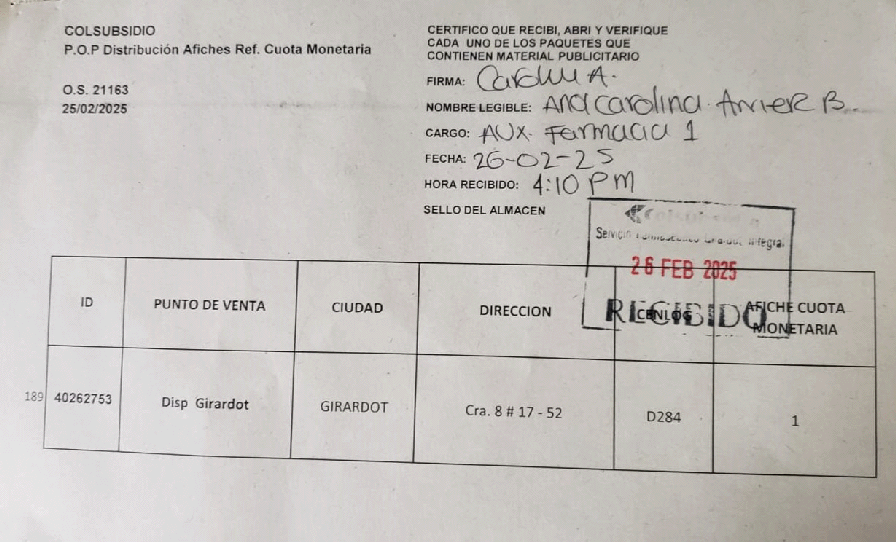 COLSUBSIDIO
P.O.P Distribución Afiches Ref. Cuota Monetaria
O.S. 21163
25/02/2025
CERTIFICO QUE RECIBI, ABRI Y VERIFIQUE
CADA UNO DE LOS PAQUETES QUE
CONTIENEN MATERIAL PUBLICITARIO
FIRMA: Carolin A.
NOMBRE LEGIBLE: Ana Carolina B.
CARGO: AUX. Farmacia 1
FECHA: 26-02-25
HORA RECIBIDO: 4:10 PM
SELLO DEL ALMACEN
Colsubsidio
26 FEB 2025
RECIBIDO
ID PUNTO DE VENTA CIUDAD DIRECCION CENLOG AFICHE CUOTA
MONETARIA
189 40262753 Disp Girardot GIRARDOT Cra. 8 # 17 - 52 D284 1